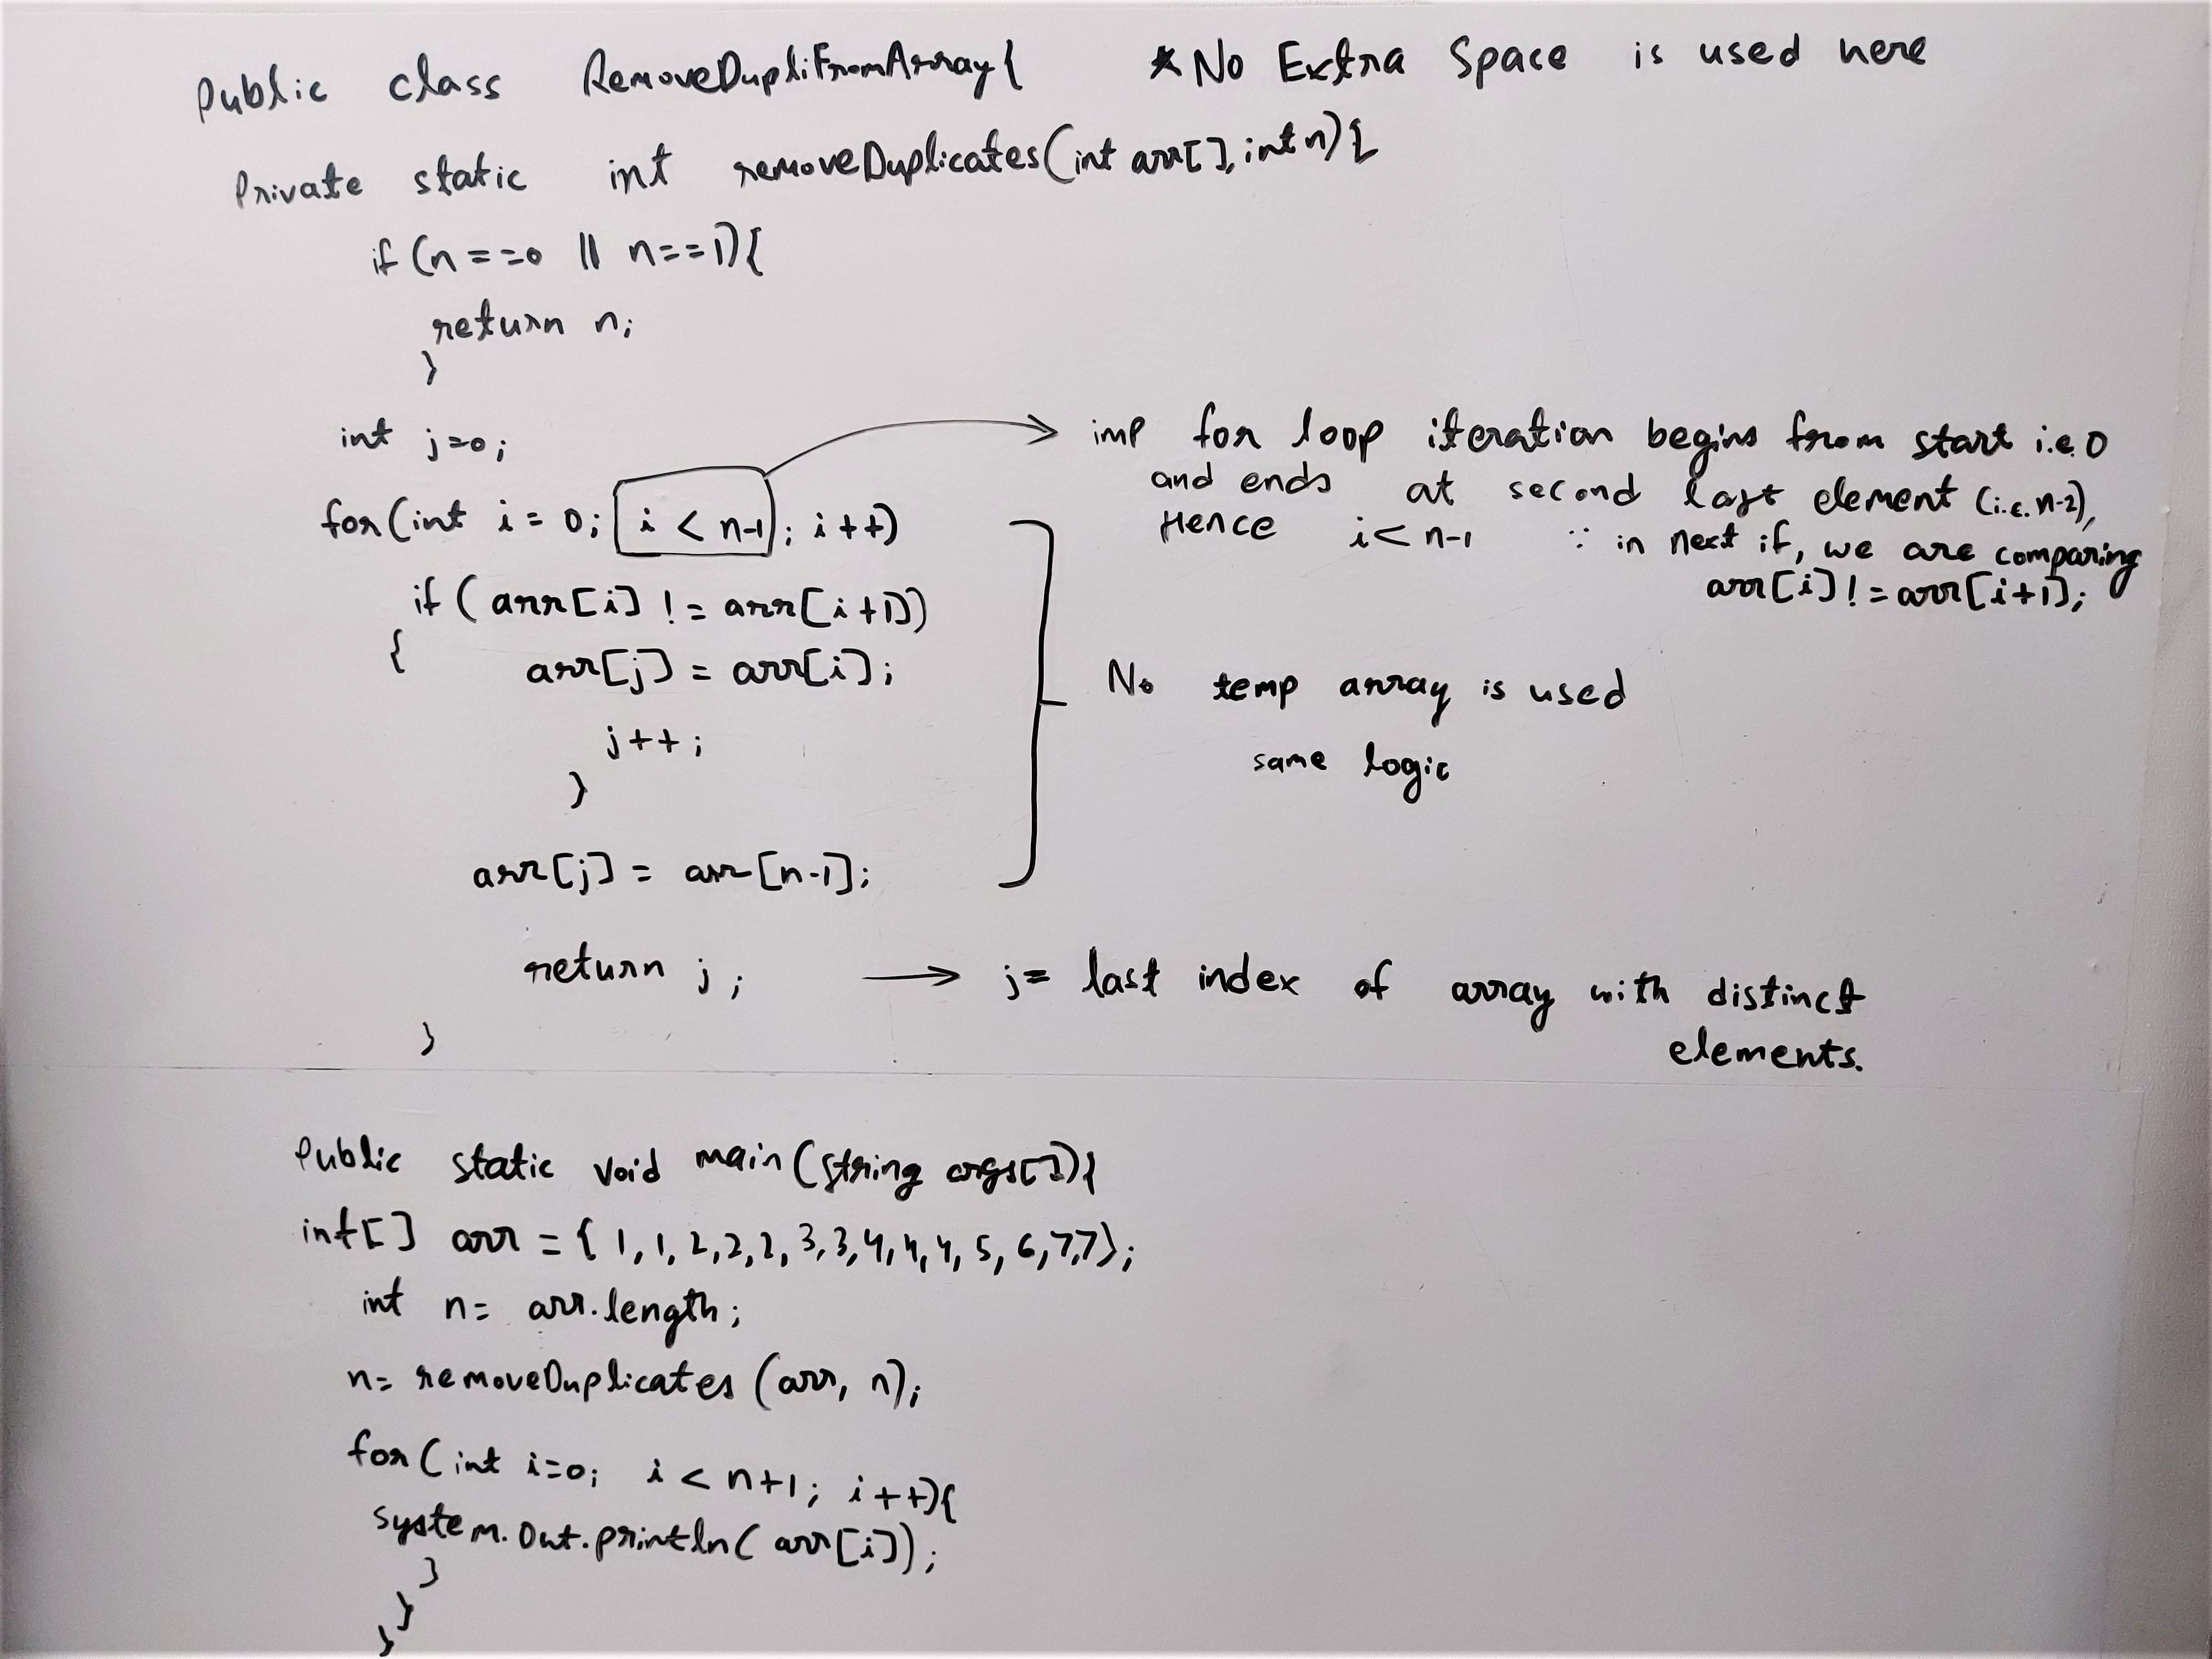 Public class RemoveDupliFromArray{ * No Extra Space is used here
Private static int removeDuplicates(int arr[], int n){
if (n==0 || n==1){
return n;
}
int j=0;
for(int i = 0; i < n-1; i++)
imp for loop iteration begins from start i.e 0
and ends at second last element (i.e. n-2),
Hence i< n-1 ∵ in next if, we are comparing
arr[i]!=arr[i+1];
if (arr[i] != arr[i+1])
{ arr[j] = arr[i];
j++;
}
No temp array is used
same logic
arr[j] = arr[n-1];
return j; → j= last index of array with distinct
elements.
}
Public static void main(string args[]){
int[] arr = { 1, 1, 2,2,2, 3,3,4,4,4, 5, 6,7,7};
int n= arr.length;
n= removeDuplicates (arr, n);
for( int i=0; i < n+1; i++){
system.out.println( arr[i]);
}
}
}